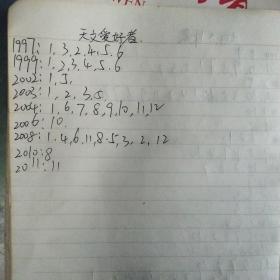 天文爱好者
1997: 1.3.2.4.5.6
1999: 1.2.3.4.5.6
2002: 1.5.
2003: 1, 2, 3,5.
2004: 1,6,7,8,9,10,11,12
2006: 10.
2008: 1.4,6.11,8.5,3、2,12
2010:8
2011:11